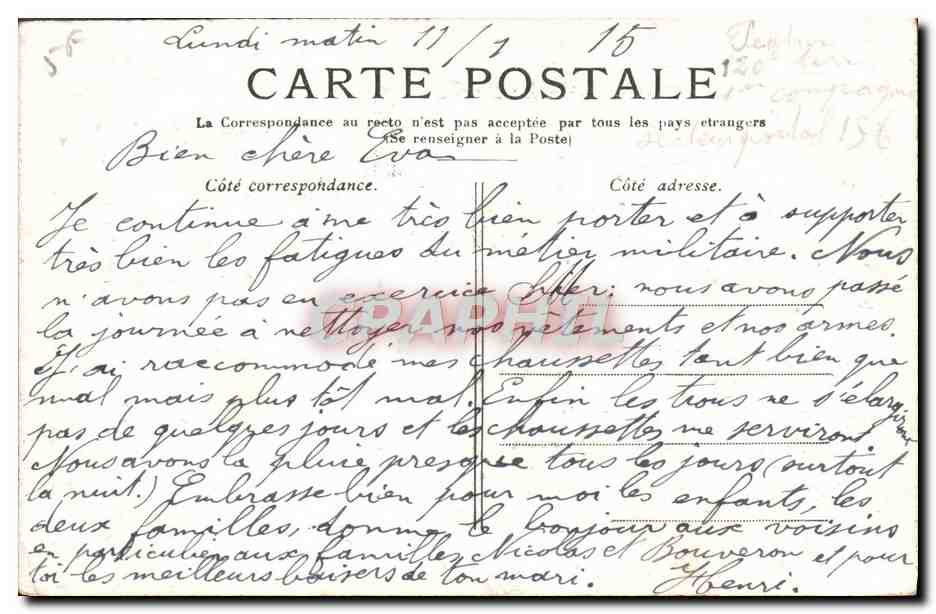 5F
Lundi matin 11/1 15
120e
CARTE POSTALE
La Correspondance au recto n'est pas acceptée par tous les pays etrangers
(Se renseigner à la Poste)
Bien chère Eva
Côté correspondance.
Côté adresse.
Je continue à me très bien porter et à supporter
très bien les fatigues du métier militaire. Nous
n'avons pas eu exercice hier; nous avons passé
la journée à nettoyer nos vêtements et nos armes.
J'ai raccommodé mes chaussettes tant bien que
mal mais plus tôt mal. Enfin les trous ne s'élargiront
pas de quelques jours et les chaussettes me serviront.
Nous avons la pluie presque tous les jours (surtout
la nuit.) Embrasse bien pour moi les enfants, les
deux familles, donne le bonjour aux voisins
en particulier aux familles Nicolas et Bouveron et pour
toi les meilleurs baisers de ton mari.
Henri.
CPAPHIL